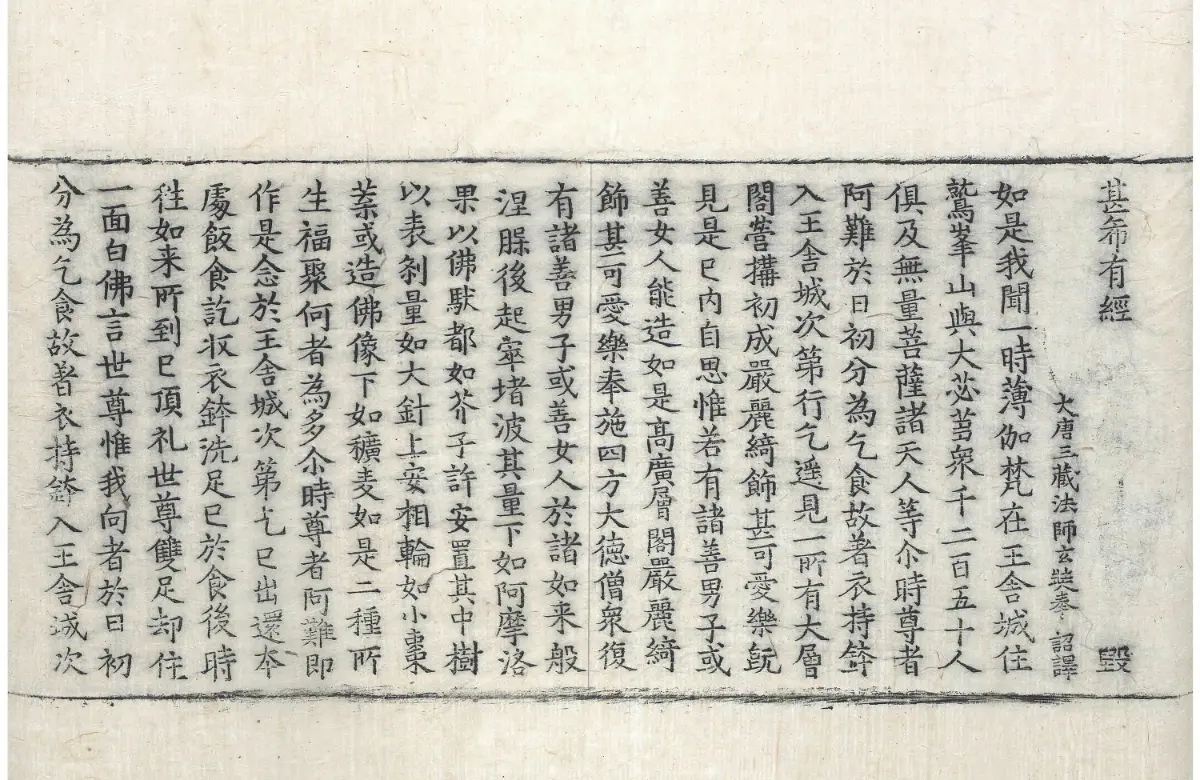 甚希有經 毀
大唐三藏法師玄奘奉 詔譯
如是我聞一時薄伽梵在王舍城住
鷲峯山與大苾芻衆千二百五十人
俱及無量菩薩諸天人等尒時尊者
阿難於日初分為乞食故著衣持鉢
入王舍城次第行乞遥見一所有大層
閣營構初成嚴麗綺飾甚可愛樂既
見是已內自思惟若有諸善男子或
善女人能造如是高廣層閣嚴麗綺
飾甚可愛樂奉施四方大德僧衆復
有諸善男子或善女人於諸如来般
涅槃後起窣堵波其量下如阿摩洛
果以佛馱都如芥子許安置其中樹
以表剎量如大針上安相輪如小棗
葉或造佛像下如穬麦如是二種所
生福聚何者為多尒時尊者阿難即
作是念於王舍城次第乞已出還本
處飯食訖収衣鉢洗足已於食後時
往如来所到已頂礼世尊雙足却住
一面白佛言世尊惟我向者於日初
分為乞食故著衣持鉢入王舍城次